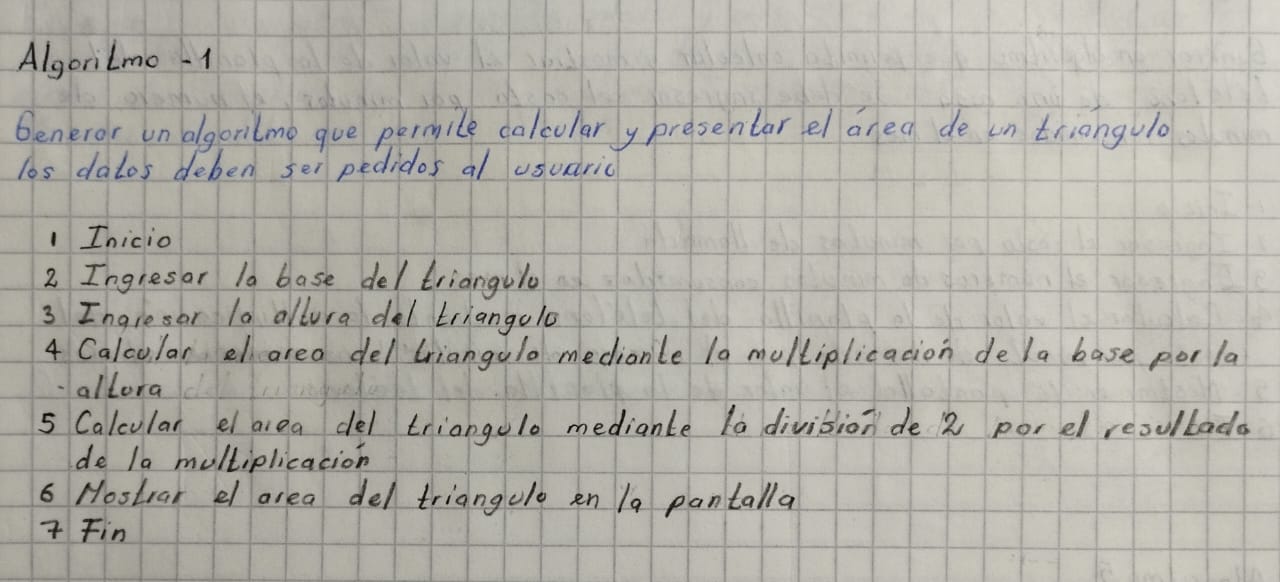 Algoritmo - 1
Generar un algoritmo que permite calcular y presentar el área de un triángulo
los datos deben ser pedidos al usuario
1 Inicio
2 Ingresar la base del triangulo
3 Ingresar la altura del triangulo
4 Calcular el area del triangulo mediante la multiplicación de la base por la
altura
5 Calcular el area del triangulo mediante la división de 2 por el resultado
de la multiplicación
6 Mostrar el area del triangulo en la pantalla
7 Fin